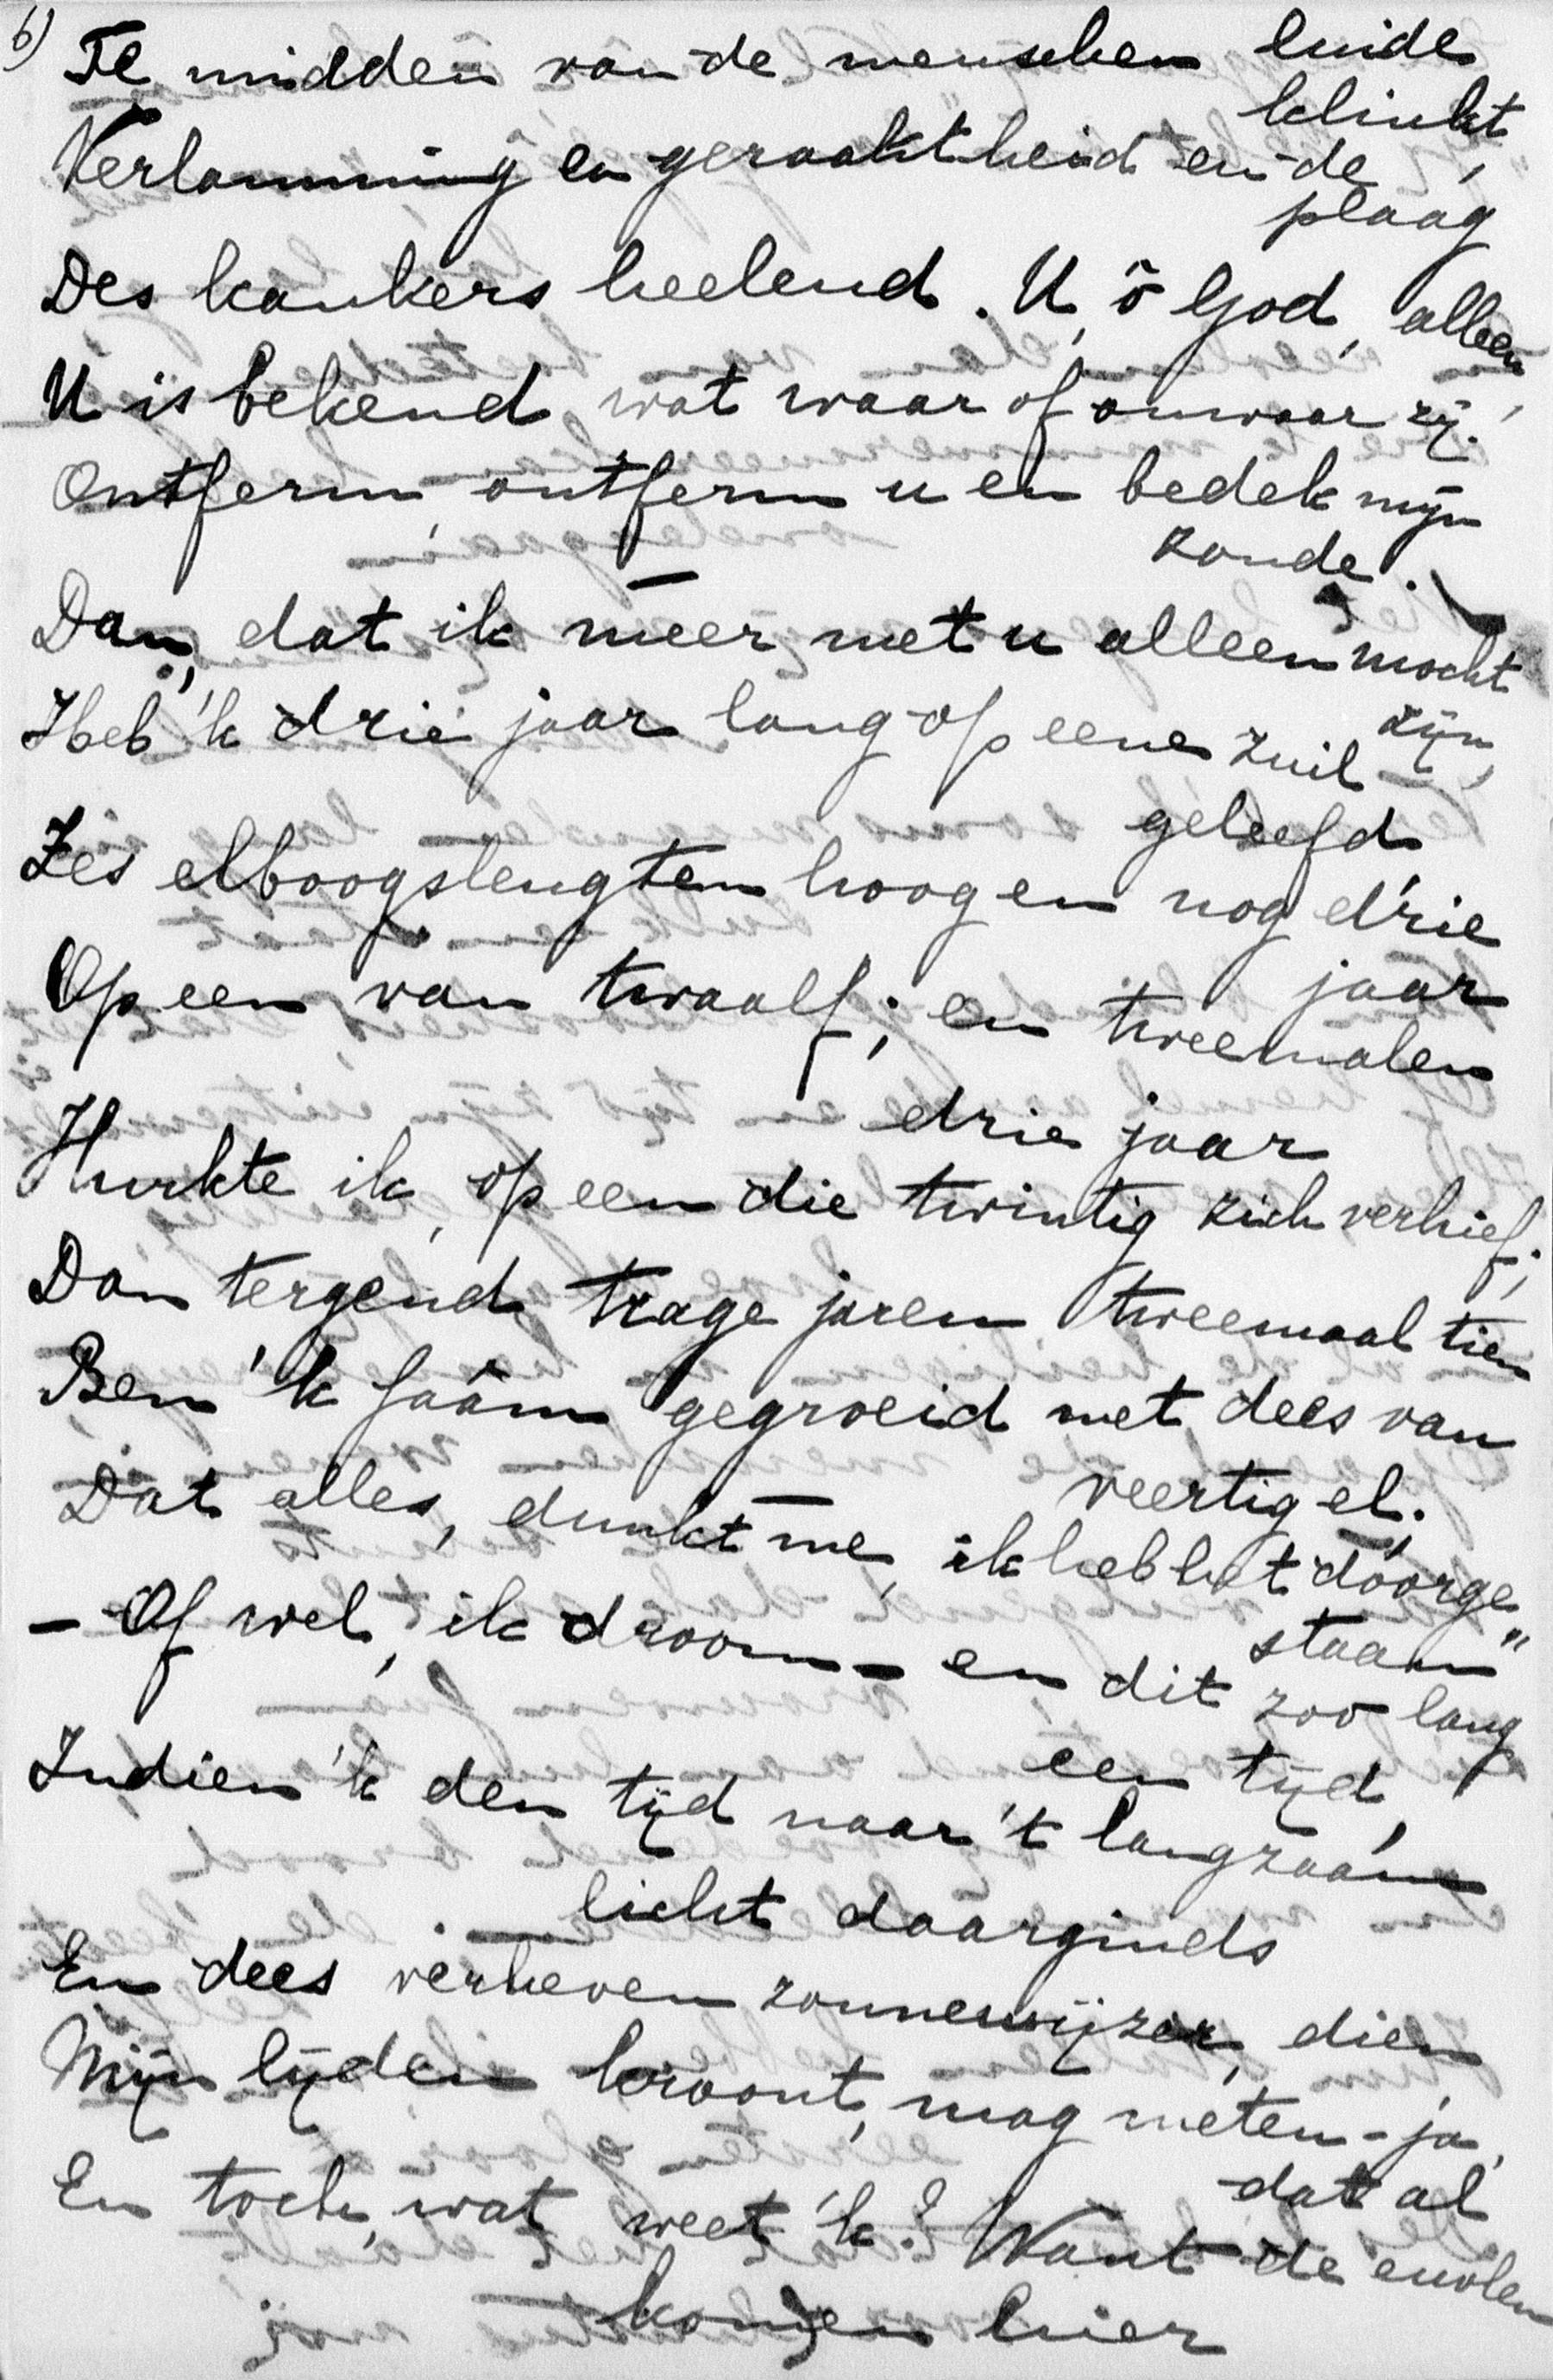 6)
Te midden van de menschen luide
klinkt,
Verlamming en geraaktheid en de
plaag
Des kankers heelend. U, ô God, alleen,
U is bekend wat waar of onwaar zij.
Ontferm, ontferm u en bedek mijn
zonde.
Dan, dat ik meer met u alleen mocht
zijn,
Heb 'k drie jaar lang op eene zuil
geleefd
Zes elboogslengten hoog en nog drie
jaar
Op een van twaalf; en tweemalen
drie jaar
Hurkte ik, op een die twintig zich verhief;
Dan tergend trage jaren tweemaal tien
Ben 'k saâm gegroeid met dees van
veertig el.
Dat alles, dunkt me, ik heb het doorge„
staan"
- Of wel, ik droom - en dit zoo lang
een tijd,
Indien 'k den tijd naar 't langzaam
licht daarginds
En dees verheven zonnewijzer, dien
Mijn lijden kroont, mag meten - ja,
dat al
En toch, wat weet 'k? Want de euvlen
komen hier